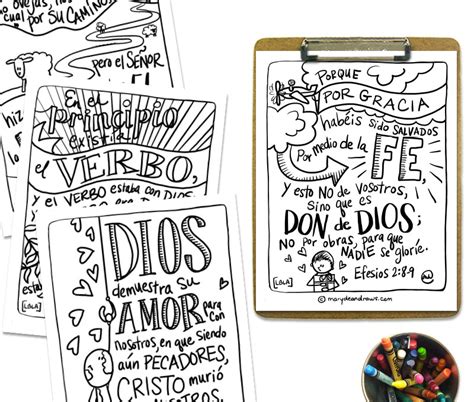 ovejas, nos
cual por su CAMINO;
pero el SEÑOR
En el
principio
existía
el VERBO,
y el VERBO estaba con DIOS
DIOS
demuestra su
AMOR para
con
nosotros, en que siendo
aún PECADORES,
CRISTO murió
NOSOTROS.
[LBLA]
PORQUE
POR GRACIA
habéis sido SALVADOS
Por medio de la
FE,
y esto NO de vosotros,
sino que es
DON de DIOS;
NO por obras, para que
NADIE se gloríe.
Efesios 2:8-9
[LBLA]
© marydeandraws.com